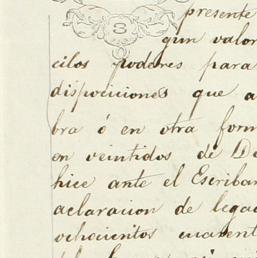 presente
S
gun valor
cilos poderes para
disposiciones que a
bra ó en otra form
en veintidos de De
hice ante el Escriban
aclaracion de legad
ochocientos cuarent